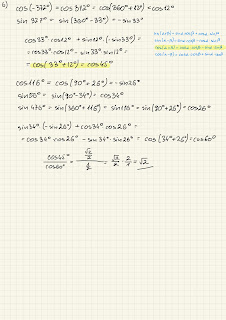 6)
cos(-372°) = cos 372° = cos(360°+12°) = cos12°
sin 327° = sin(360°-33°) = -sin33°
cos33° cos12° + sin12° · (-sin33°) =
= cos33° cos12° - sin33° sin12° =
= cos(33°+12°) = cos45°
cos116° = cos(90°+26°) = -sin26°
sin56° = sin(90°-34°) = cos34°
sin476° = sin(360°+116°) = sin116° = sin(90°+26°) = cos26°
sin34° (-sin26°) + cos34° cos26° =
= cos34° cos26° - sin34° · sin26° = cos(34°+26°) = cos60°
cos45° / cos60° = √2/2 / 1/2 = √2/2 · 2/1 = √2